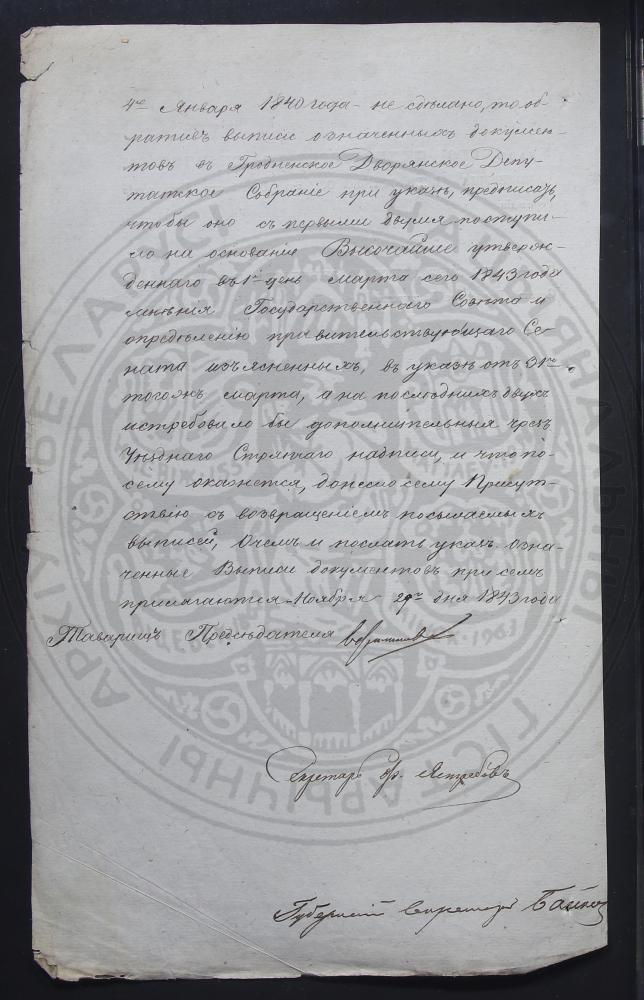 4го Января 1840 года - не сдѣлано, то об-
ративъ выписи означенныхъ докумен-
товъ въ Гродненское Дворянское Депу-
татское Собраніе при указѣ, предписать,
чтобы оно съ первыми двумя поступи-
ло на основаніи Высочайше утверж-
деннаго въ 1й день марта сего 1843 года
мнѣнія Государственнаго Совѣта и
опредѣленію правительствующаго Се-
ната изъясненныхъ, въ указѣ отъ 31го
тогожъ марта, а на послѣднихъ двухъ
истребовало бы дополнительныя чрезъ
Уѣзднаго Стряпчаго надписи, и что по-
сему окажется, донесло сему Присут-
ствію съ возвращеніемъ посылаемыхъ
выписей, О чемъ и послать указъ. Озна-
ченные Выписи документовъ при семъ
прилагаются. Ноября 29го дня 1843 года
Таварищъ Предсѣдателя
Секретарь Ястребовъ
Губернскій Секретарь